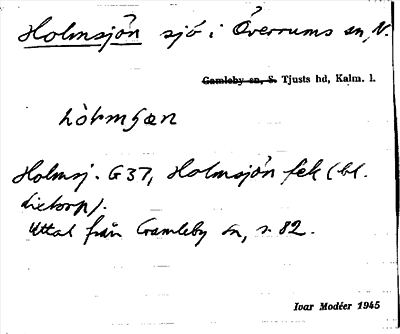 Holmsjön sjö i Överrums sn, N.
Gamleby sn, S. Tjusts hd, Kalm. l.
Holmsj. G 37, Holmsjön fek (bl.
Uttal från Gamleby sn, s. 82.
Ivar Modéer 1945